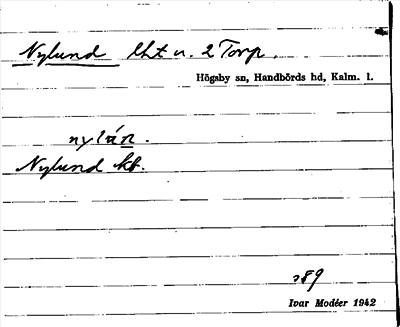 Nylund lht u. 2 Torp.
Högsby sn, Handbörds hd, Kalm. l.
nylán.
Nylund kb.
289
Ivar Modéer 1942